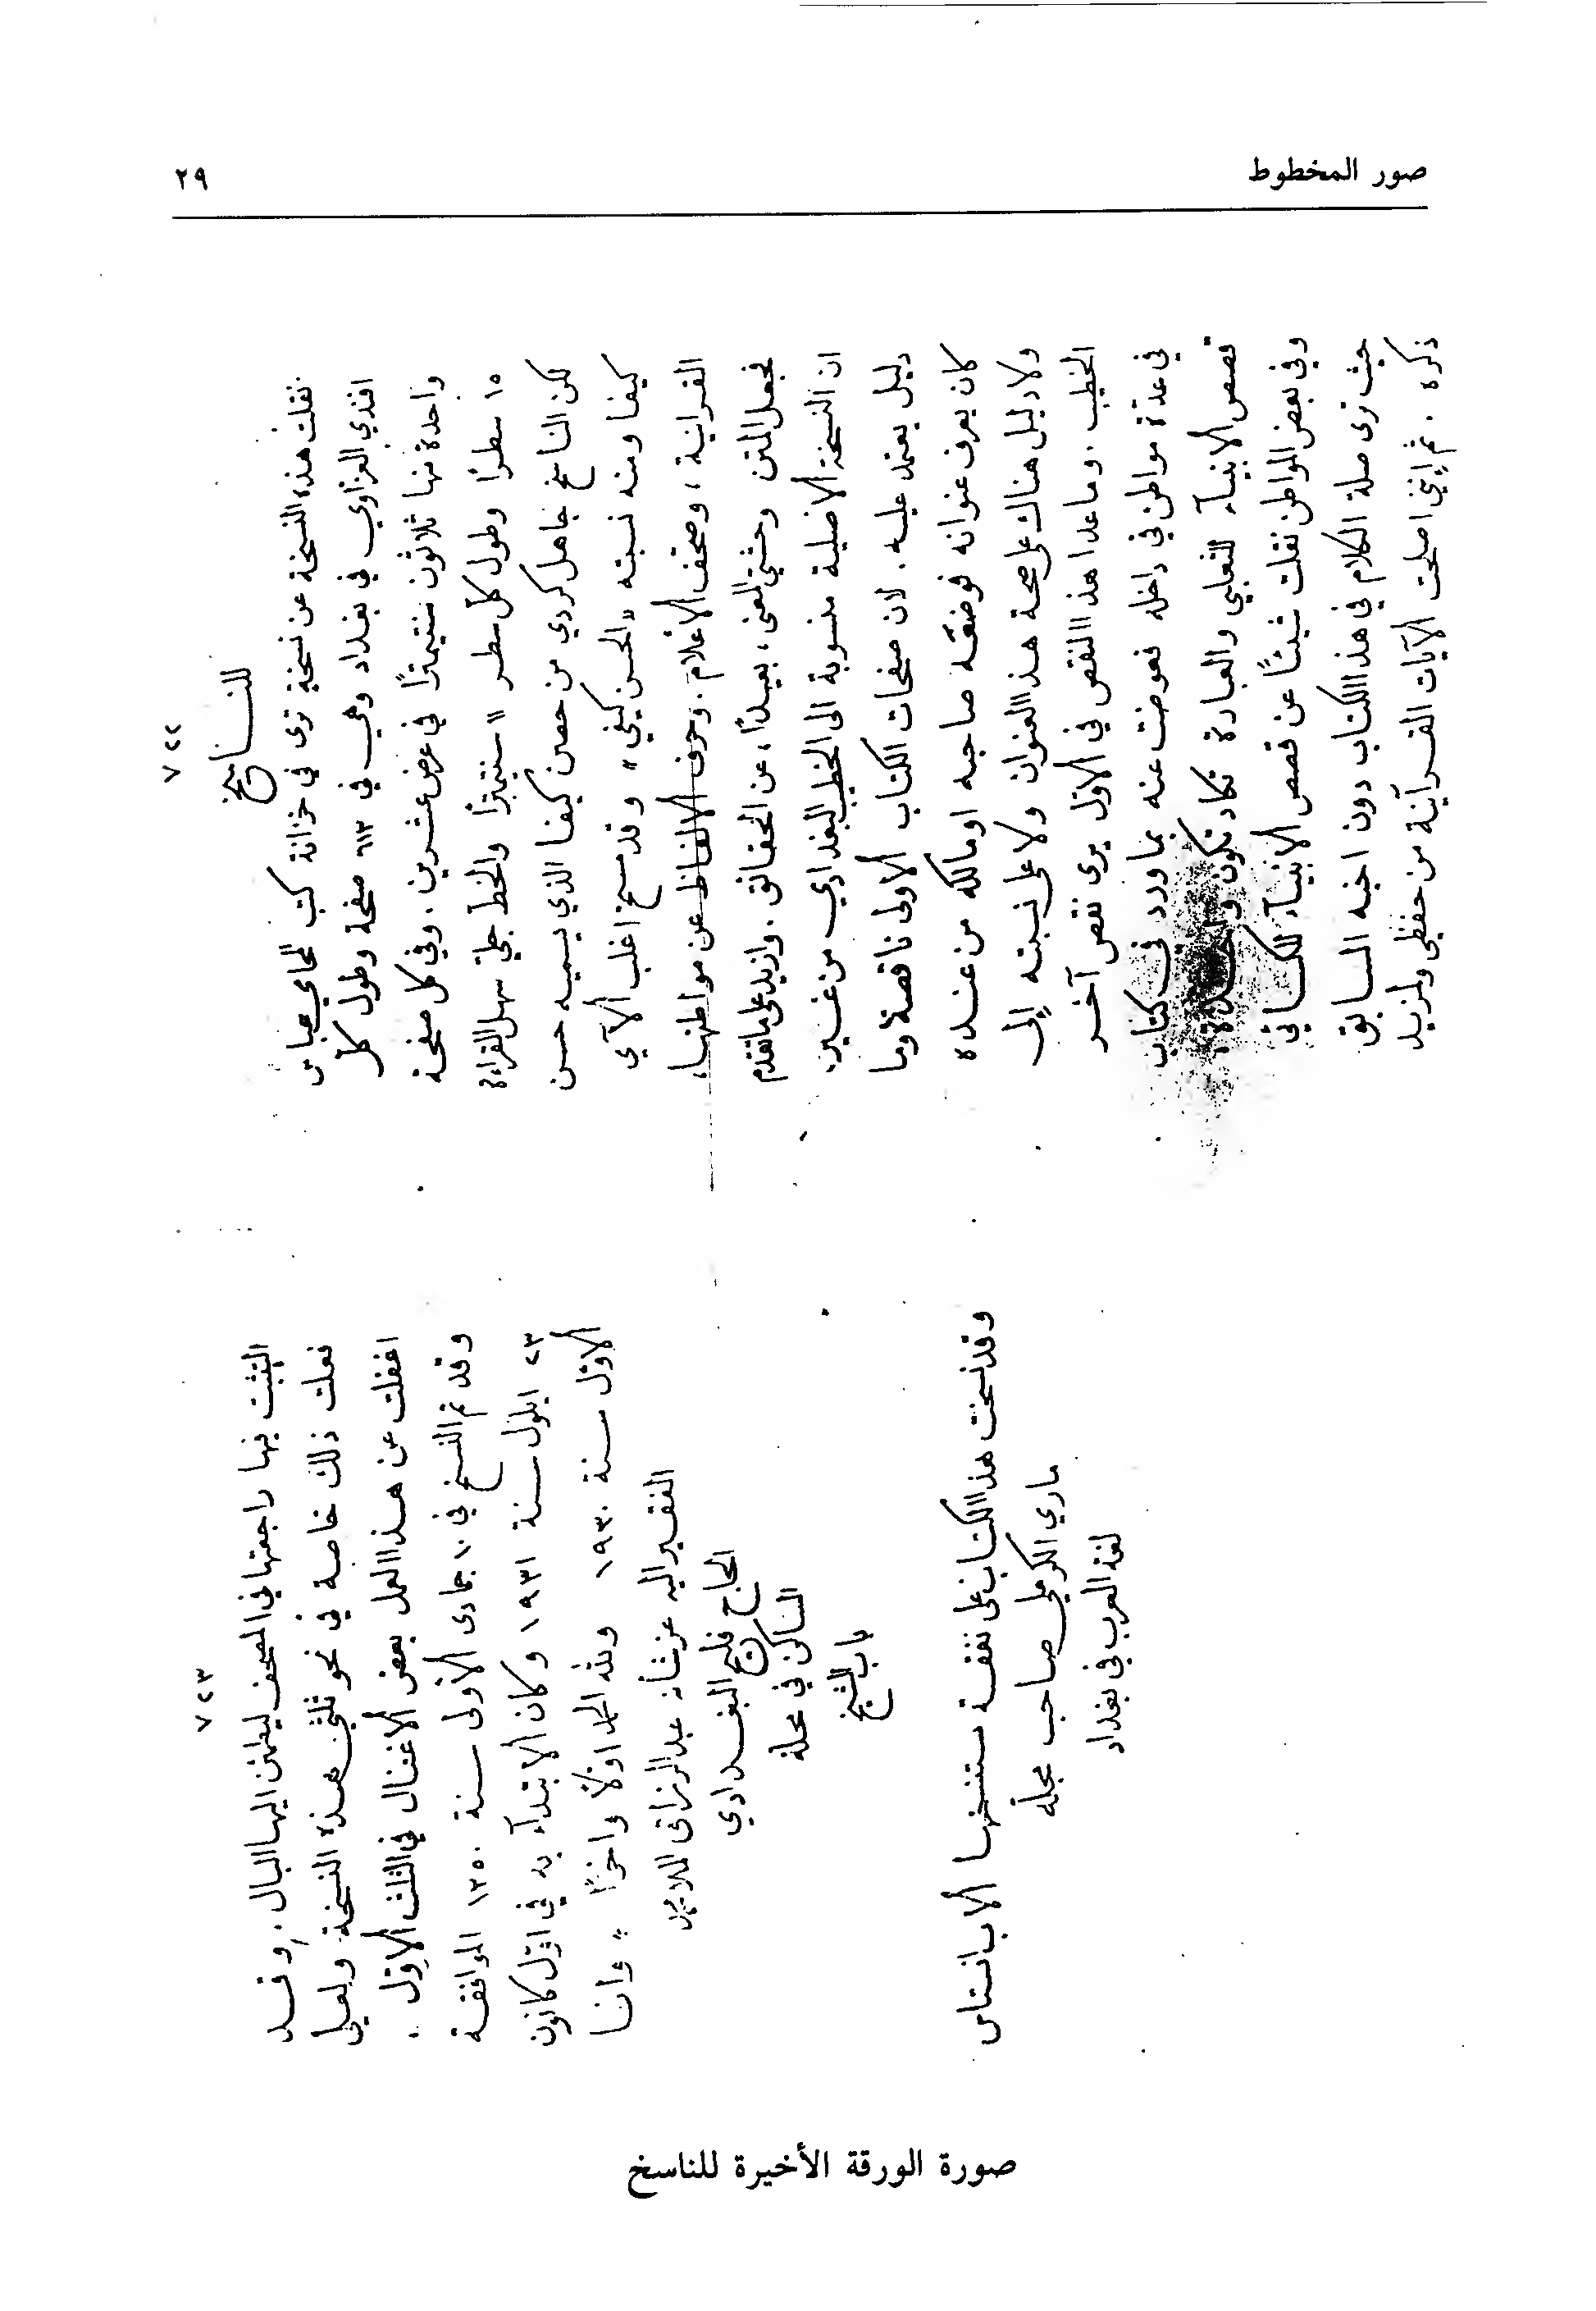 صور المخطوط
٢٩
٧٢٢
للناسخ
نقلت هذه النسخة عن نسخة ترى في خزانة كتب المحامي عباس
افندي العزاوي في بغداد وهي في ٦١٣ صفحة وطول كل
واحدة منها ثلاثون سنتيمترًا في عرض عشرين. وفي كل صفحة
١٥ سطرًا وطول كل سطر ١١ سنتيمترًا والخط جلي سهل القراءة
لكن الناسخ جاهل كردي من حصن كيفا الذي يسميه حسن
كيفا ومنه نسبته «الحسن كيفي» وقد مسخ اغلب الآي
القرانية، وصحف الأعلام. وحرف الالفاظ عن مواطنها،
فجعل المتن وحشي المعنى، بعيدًا، عن الحقائق. وازيد على ما تقدم
ان النسخة الاصلية منسوبة الى الخطيب البغدادي من غير
دليل يعتمد عليه. لان صفحات الكتاب الاولى ناقصة وما
كان يعرف عنوانه فوضعه صاحبه او مالكه من عنده
ولا دليل هناك على صحة هذا العنوان ولا على نسبته إلى
الخطيب. وما عدا هذا النقص في الاول يرى نقص آخر
في عدة مواطن في داخله فعوضت عنه بما ورد في كتاب
قصص الانبيآء للثعلبي والعبارة تكاد تكون واحدة.
وفي بعض المواطن نقلت شيئًا عن قصص الانبيآء للكسائي
حيث ترى صلة الكلام في هذا الكتاب دون اخيه السابق
ذكره. ثم إنني اصلحت الآيات القرآنية من حفظي ولمزيد
٧٢٣
التثبت فيها راجعتها في المصحف ليطمئن اليها البال. وقد
فعلت ذلك خاصة في نحو ثلثي هذه النسخة ولعلي
اغفلت عن هذا العمل بعض الاغفال في الثلث الاول.
وقد تم النسخ في ١٠ جمادى الأولى سنة ١٣٥٠ الموافقة
٢٣ ايلول سنة ١٩٣١ وكان الابتدآء به في اول كانون
الاول سنة ١٩٣٠ ولله الحمد اولًا واخرًا وانا
الفقير اليه عز شأنه عبد الرزاق الملا محمد
الحاج فليح البغدادي
الساكن في محلة
باب الشيخ
وقد نسخت هذا الكتاب على نفقة مستنسخها الاب انستاس
ماري الكرملي صاحب مجلة
لغة العرب في بغداد
صورة الورقة الأخيرة للناسخ